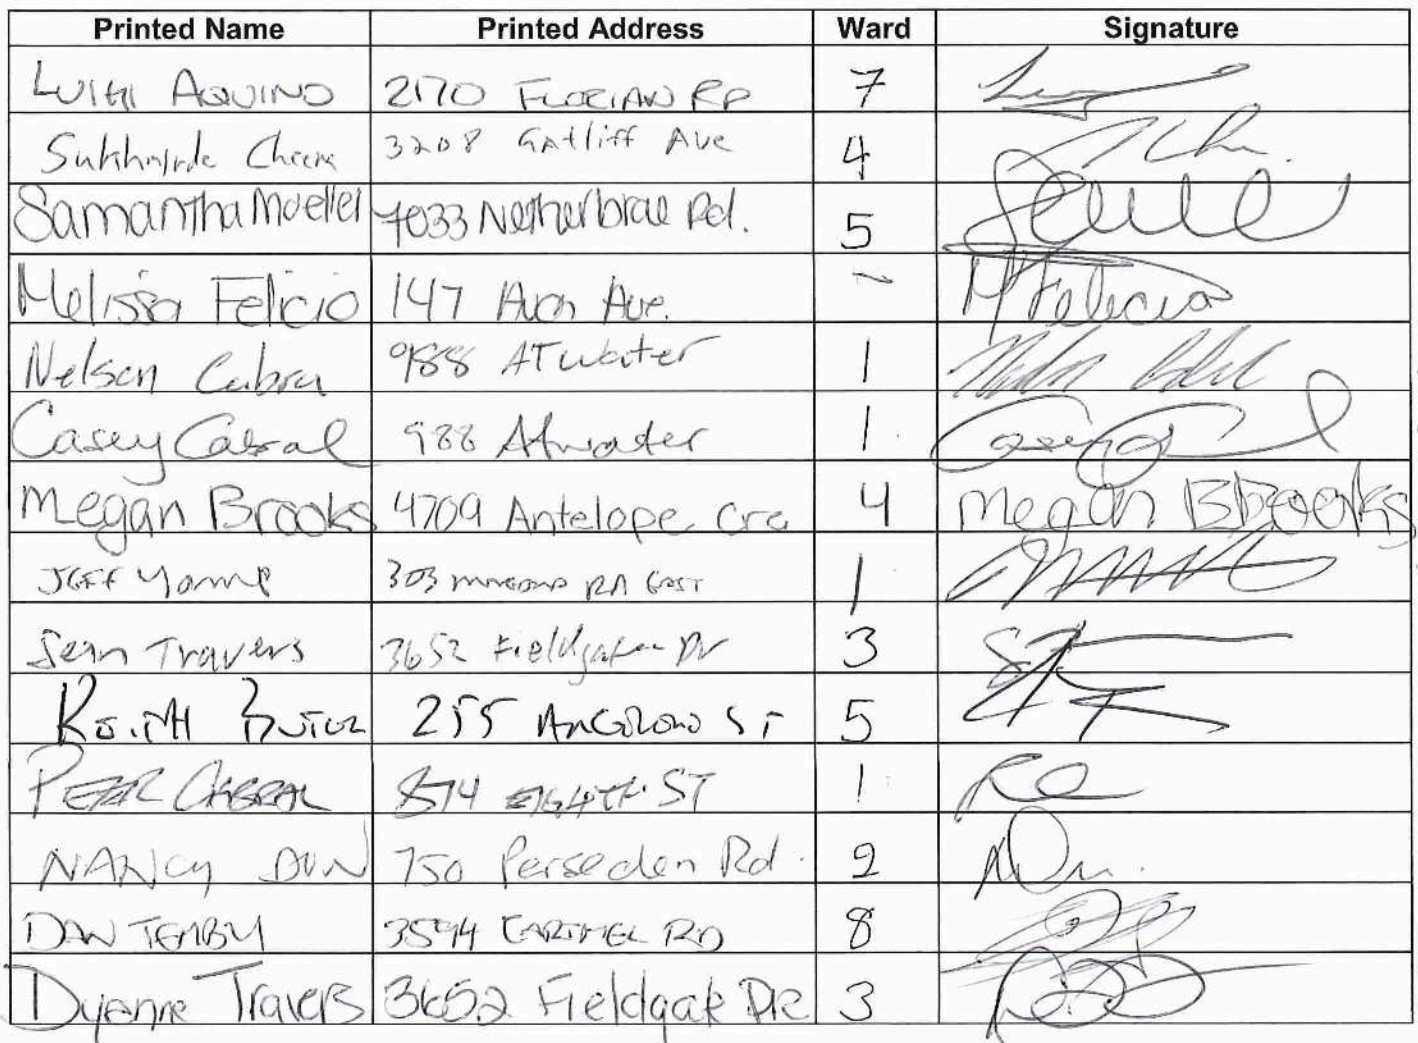 Printed Name Printed Address Ward Signature
LUIGI AQUINO 2170 FLORIAN RD 7
3208 Gatliff Ave 4
Samantha Moeller 7033 Netherbrae Rd. 5
Melissa Felicio 147 Avon Ave. ~ M Felicio
Nelson Cabral 988 ATwater 1
Casey Cabral 988 Atwater 1
Megan Brooks 4709 Antelope Cre 4 Megan BBrooks
JEFF 303 RD EAST 1
Sean Travers 3652 Fieldgate Dr 3
KEITH 255 ANGELENE ST 5
PETER CABRAL 874 EIGHTH ST 1
NANCY 750 Rd. 2
DAN TEMBY 3594 RD 8
Dyanne Travers 3652 Fieldgate DR 3